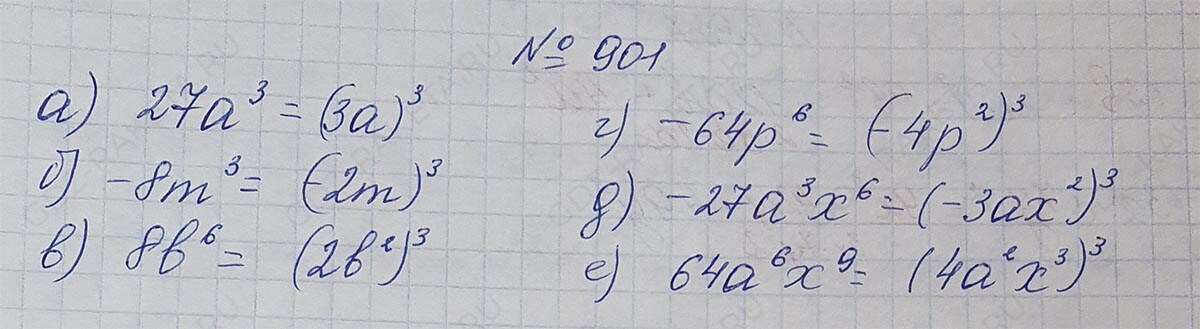 № 901
а) 27a³ = (3a)³
б) -8m³ = (-2m)³
в) 8b⁶ = (2b²)³
г) -64p⁶ = (-4p²)³
д) -27a³x⁶ = (-3ax²)³
е) 64a⁶x⁹ = (4a²x³)³